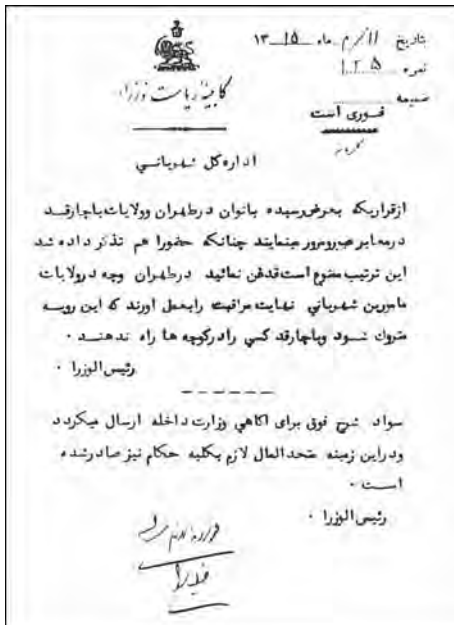 تاریخ ۱۱ ماه ۱۳۱۵
نمره ۱۲۵
کابینه ریاست وزراء
ضمیمه
فوری است
محرمانه
اداره کل شهربانی
ازقراریکه بعرض رسیده بانوان در طهران و ولایات باچارقد
درمعابر عبورومرور مینمایند چنانکه حضورا هم تذکر داده شد
این ترتیب ممنوع است قدغن نمائید در طهران وچه در ولایات
مامورین شهربانی نهایت مراقبت رابعمل اورند که این رویه
متروک شود وباچارقد کسی رادرکوچه ها راه ندهند ۰
رئیس الوزرا ۰
سواد شرح فوق برای اکاهی وزارت داخله ارسال میکردد
ودراین زمینه متحدالمال لازم بکلیه حکام نیز صادرشده
است ۰
رئیس الوزرا ۰